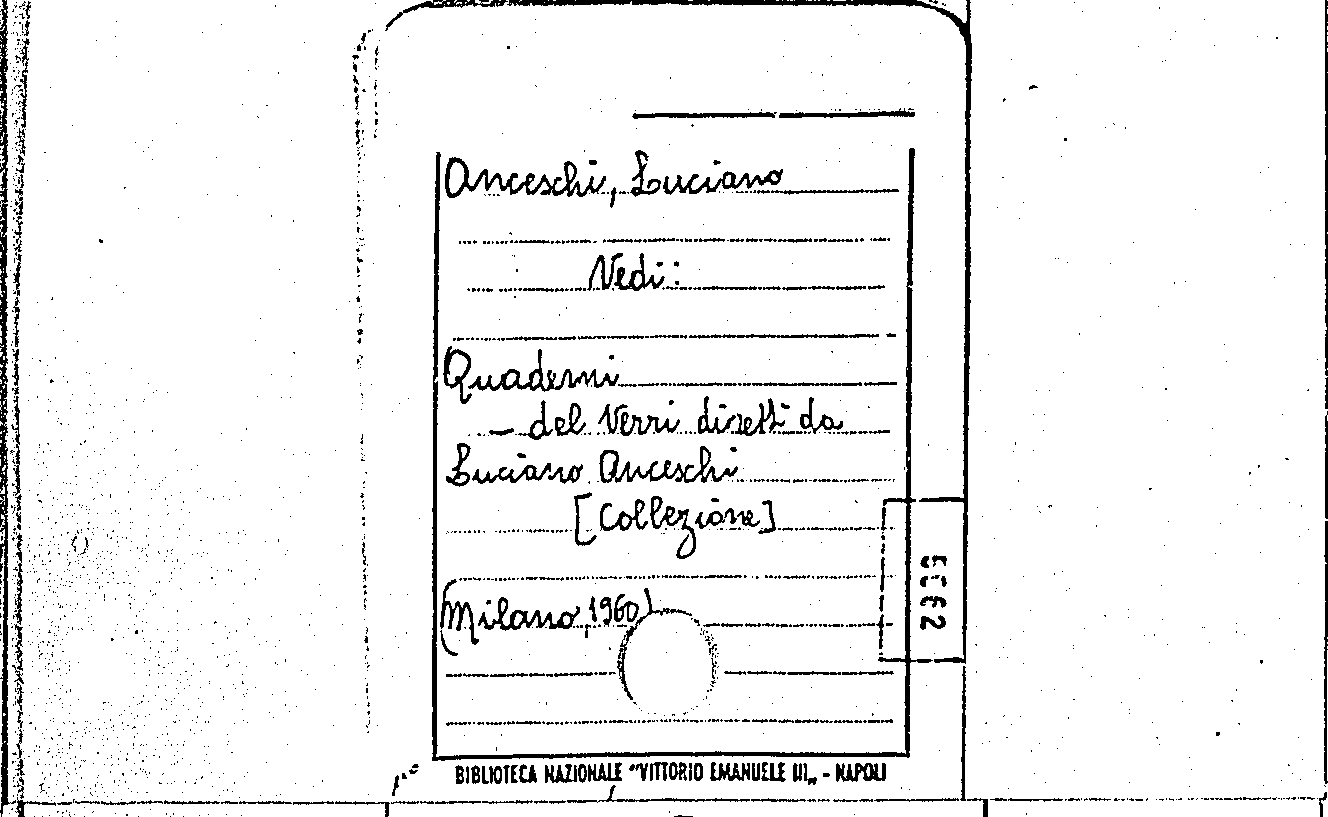 Anceschi, Luciano
Vedi:
Quaderni
- del Verri diretti da
Luciano Anceschi
[Collezione]
(Milano, 1960)
BIBLIOTECA NAZIONALE "VITTORIO EMANUELE III„ - NAPOLI